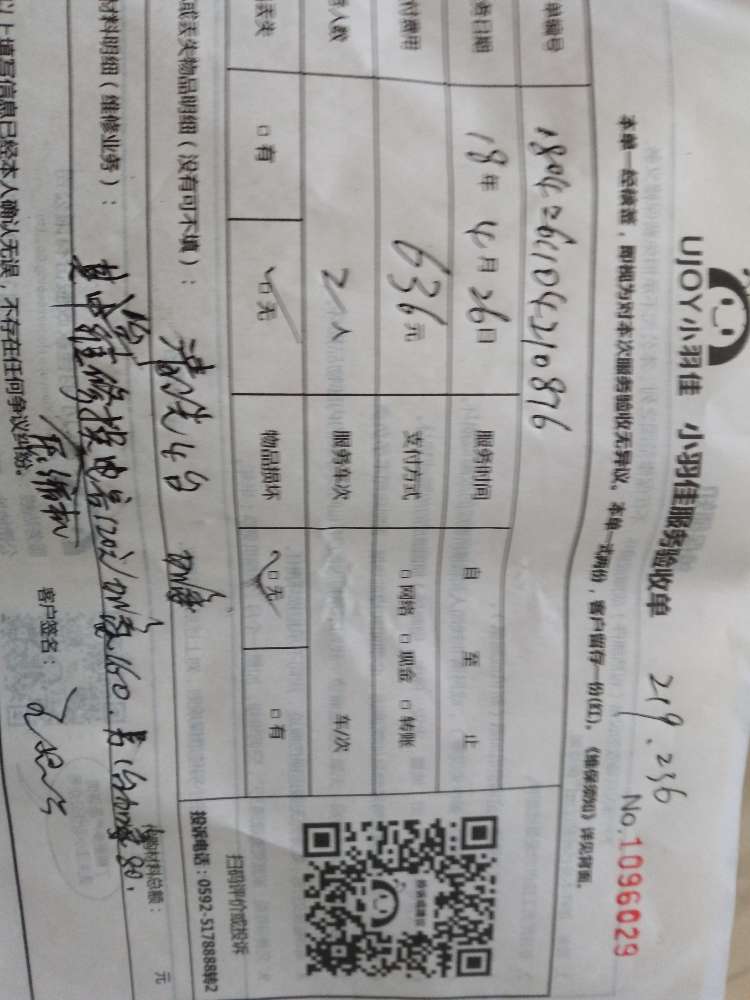 UJOY小羽佳 小羽佳服务验收单
219.236
No.1096029
本单一经签署，即视为对本次服务验收无异议。本单一式两份，客户留存一份(红)。《维保须知》详见背面。
单编号 1804261104210876
务日期 18年4月26日 服务时间 自 至 止
付费用 636元 支付方式 □网络 □现金 □转账
务人数 2人 服务车次 车/次
丢失 □有 □无 物品损坏 □无 □有
或丢失物品明细（没有可不填）：
清洗4台 加
材料明细（维修业务）：
其中 维修 120 加 160. 另1台加 80.
压缩机
材料总额： 元
以上填写信息已经本人确认无误，不存在任何争议纠纷。
客户签名：
扫码评价或投诉
投诉电话：0592-5178888转2